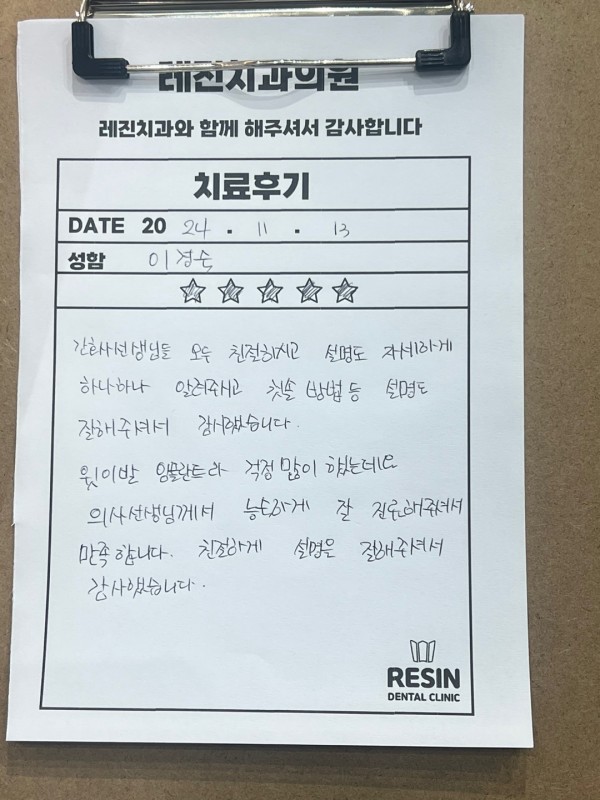 레진치과의원
레진치과와 함께 해주셔서 감사합니다
치료후기
DATE 20 24 . 11 . 13
성함 이경숙
간호사선생님들 모두 친절하시고 설명도 자세하게
하나하나 알려주시고 칫솔 방법 등 설명도
잘해주셔서 감사했습니다.
윗이발 임플란트라 걱정 많이 했는데요
의사선생님께서 능숙하게 잘 진료해주셔서
만족합니다. 친절하게 설명은 잘해주셔서
감사했습니다.
RESIN
DENTAL CLINIC